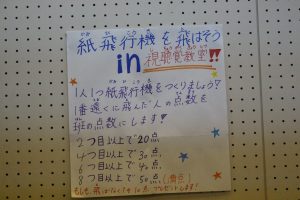 紙飛行機を飛ばそう
in 視聴覚教室!!
1人1つ紙飛行機をつくりましょう?
1番遠くに飛んだ人の点数を
班の点数にします!
2つ目以上で20点
4つ目以上で30点
6つ目以上で40点
8つ目以上で50点(満点)